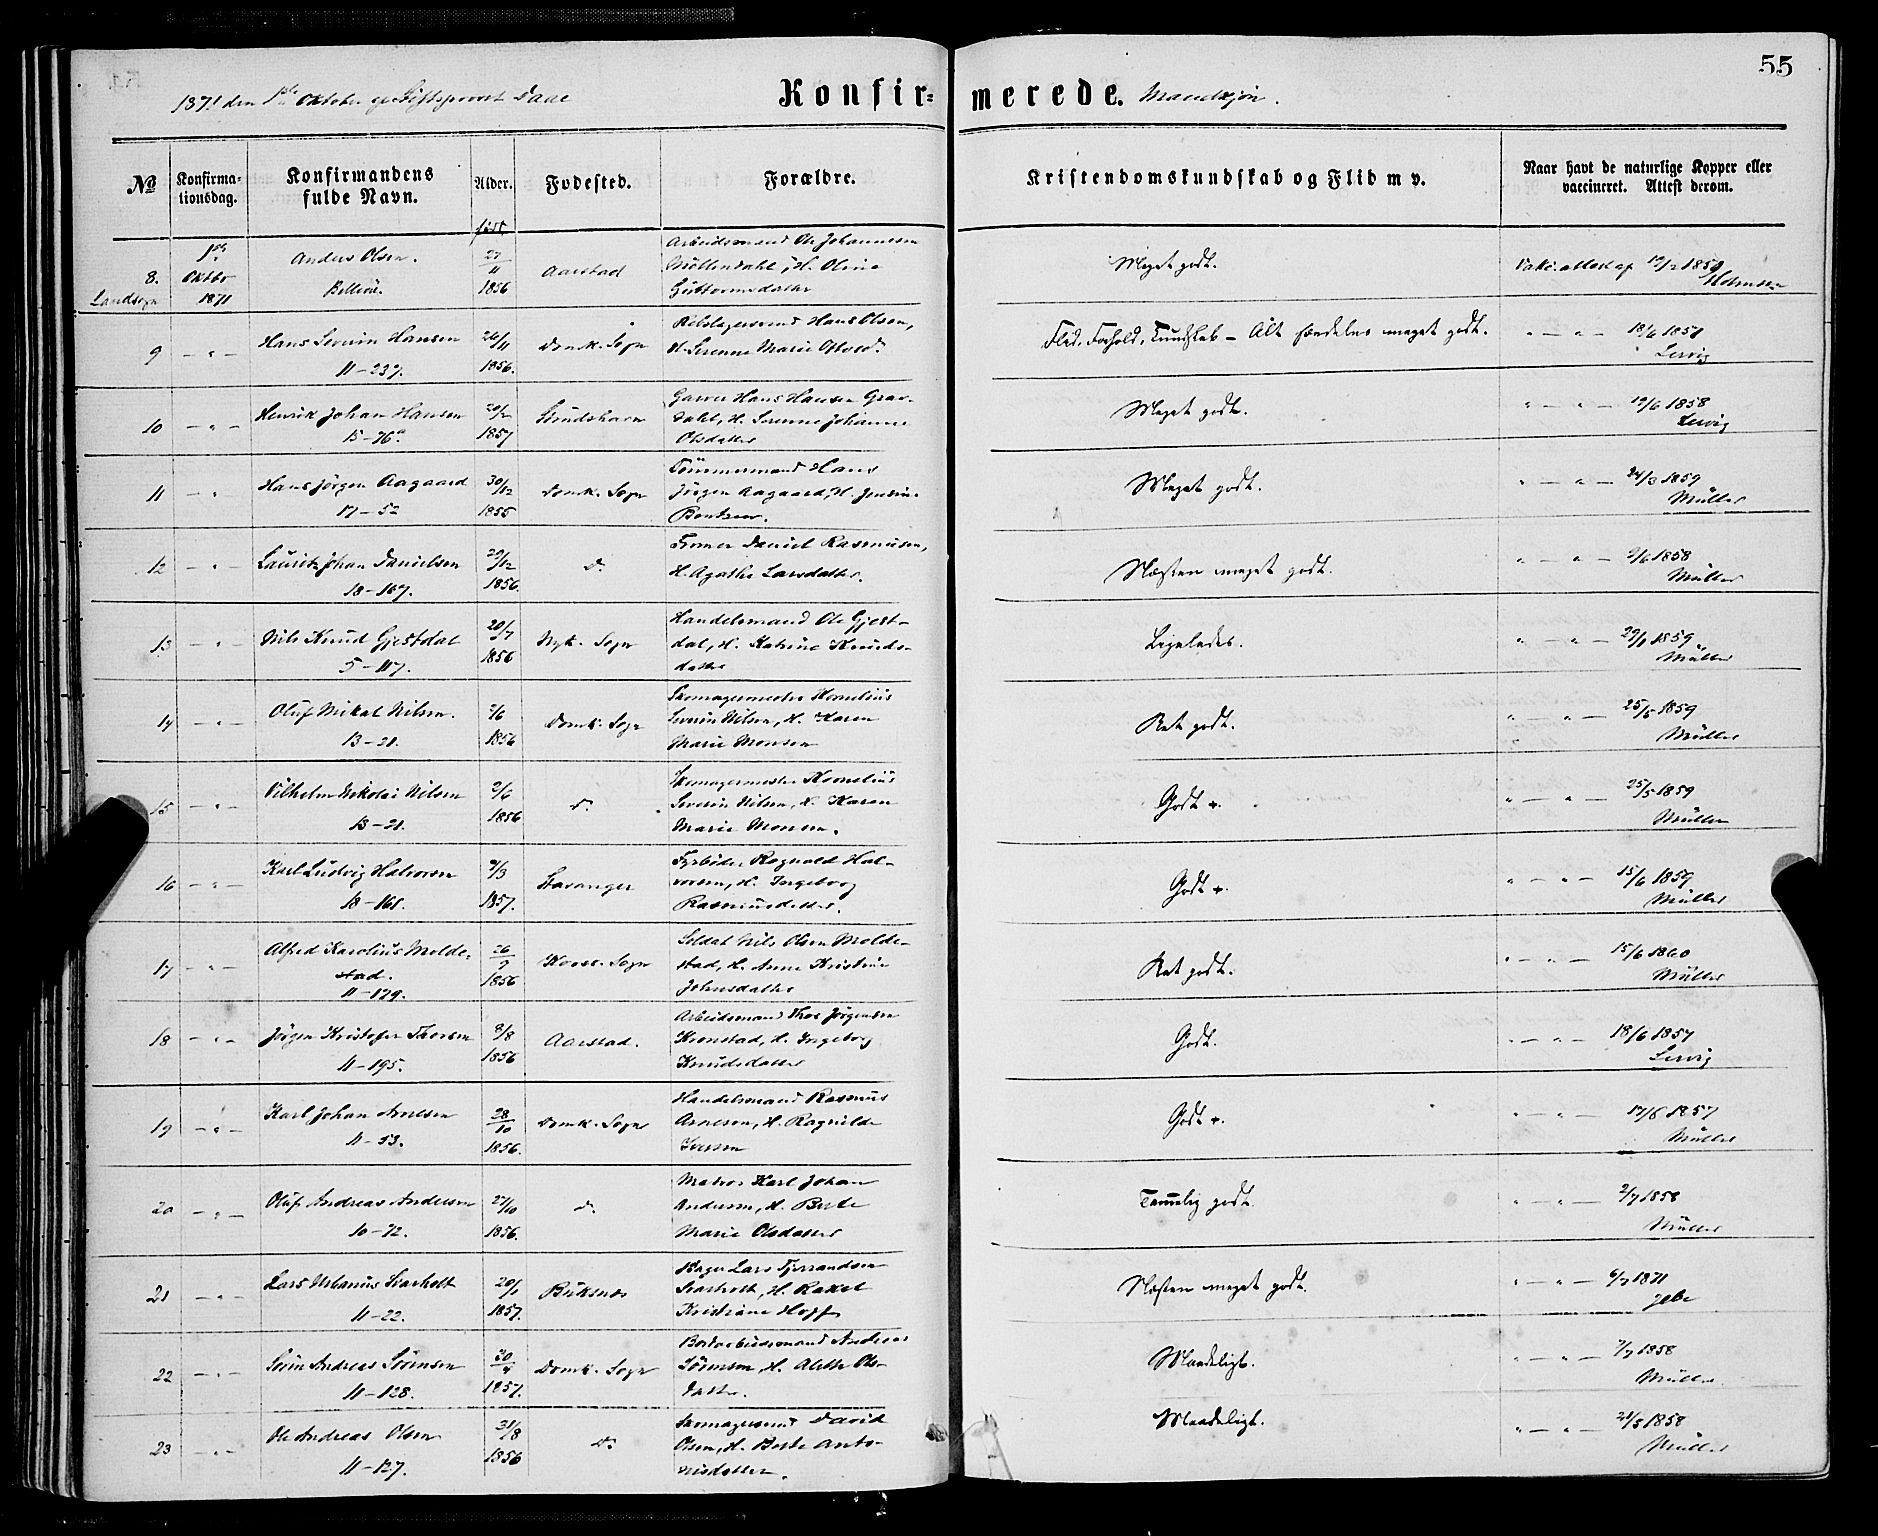 55
1871 den 1ste Oktober af Stiftsprovst Daae
Konfir-merede. Mandkjøn.
No
Konfirma-tionsdag.
Konfirmandens fulde Navn.
Alder.
Fødested.
Forældre.
Kristendomskundskab og Flid m v.
Naar havt de naturlige Kopper eller vaccineret. Attest derom.
født
8. Landsogn 1ste Oktbr 1871 Anders Olsen. 27/11 1856 Aarstad Arbeidsmand Ole Johannesen Møllendahl, H. Oline Guttormsdatter Meget godt. Vakc. attest af 1858
9 - " - Hans Severin Hansen 11-237. 26/11 1856. Domk. Sogn Rebslagersvend Hans Olsen, H. Serenne Marie Olsd. Flid, Forhold, Kundskab - Alt særdeles meget godt. " - " - 18/6 1857 Lervig
10 - " - Henrik Johan Hansen 15-76a 20/2 1857 Strudshavn Garver Hans Hansen Gravdahl, H. Serenne Johanne Olsdatter Meget godt. " - " - 19/6 1858 Lervig
11 - " Hans Jørgen Aagaard 17-52 30/12 1855 Domk. Sogn Tømmermand Hans Jørgen Aagaard, H. Bentsen. Meget godt. " - " - 24/3 1859 Müller
12 - " - Lauritz Johan Danielsen 18-167. 29/12 1856. Do Daniel Rasmusen, H. Agathe Larsdatter. Næsten meget godt. " - " - 1858 Müller
13 - " Nils Knud Gjestdal 5-117. 20/7 1856 Nyk. Sogn Handelsmand Ole Gjestdal, H. Katrine Knudsdatter Ligeledes. " - " - 1859 Müller
14 - " - Oluf Mikal Nilsen. 13-21. 2/6 1856 Domk. Sogn Skomagermester Kornelius Severin Nilsen, H. Karen Marie Monsen Ret godt. " - " - 25/5 1859 Müller
15 - " - Vilhelm Nikolai Nilsen 13-21. 2/6 1856 Do Skomagermester Kornelius Severin Nilsen, H. Karen Marie Monsen. Godt +. " - " - 25/5 1859 Müller
16 - " - Karl Ludvig Halvorsen 18-161. 9/3 1857. Stavanger Fyrbøder Ragnald Halvorsen, H. Ingeborg Rasmusdatter. Godt +. " - " - 15/6 1859 Müller
17 - " - Alfred Karolius Moldestad. 11-129. 26/9 1856 Korsk. Sogn Soldat Nils Olsen Moldestad, H. Anne Kristine Johnsdatter Ret godt. " - " - 15/6 1860 Müller
18 - " - Jørgen Kristofer Thorsen 11-195. 8/8 1856 Aarstad. Arbeidsmand Thor Jørgensen Kronstad, H. Ingeborg Knudsdatter Godt. " - " - 18/6 1857 Lervig
19 - " - Karl Johan Arnesen 11-53. 28/10 1856. Domk. Sogn Handelsmand Rasmus Arnesen, H. Ragnilde Iversen Godt +. " - " - 17/6 1857 Müller
20 - " - Oluf Andreas Andersen 10-72. 27/10 1856. Do Matros Karl Johan Andersen, H. Berte Marie Olsdatter Temmelig godt. " - " - 2/7 1858 Müller
21 - " - Lars Urbanus Skarholt 11-22. 20/1 1857. Buksnæs Bager Lars Skarholt, H. Rakel Kristiane Hopp Næsten meget godt. " - " - 6/7 1871 Jebe
22 - " - Søren Andreas Sørensen 11-128. 20/4 1857. Domk. Sogn Bordarbeidsmand Andreas Sørensen, H. Alethe Olsdatter. Maadeligt. " - " - 7/7 1858 Müller
23 - " - Ole Andreas Olsen 11-127. 31/8 1856 Do Skomagersvend David Olsen, H. Berte Antonisdatter. Maadeligt. " - " - 21/5 1858 Müller